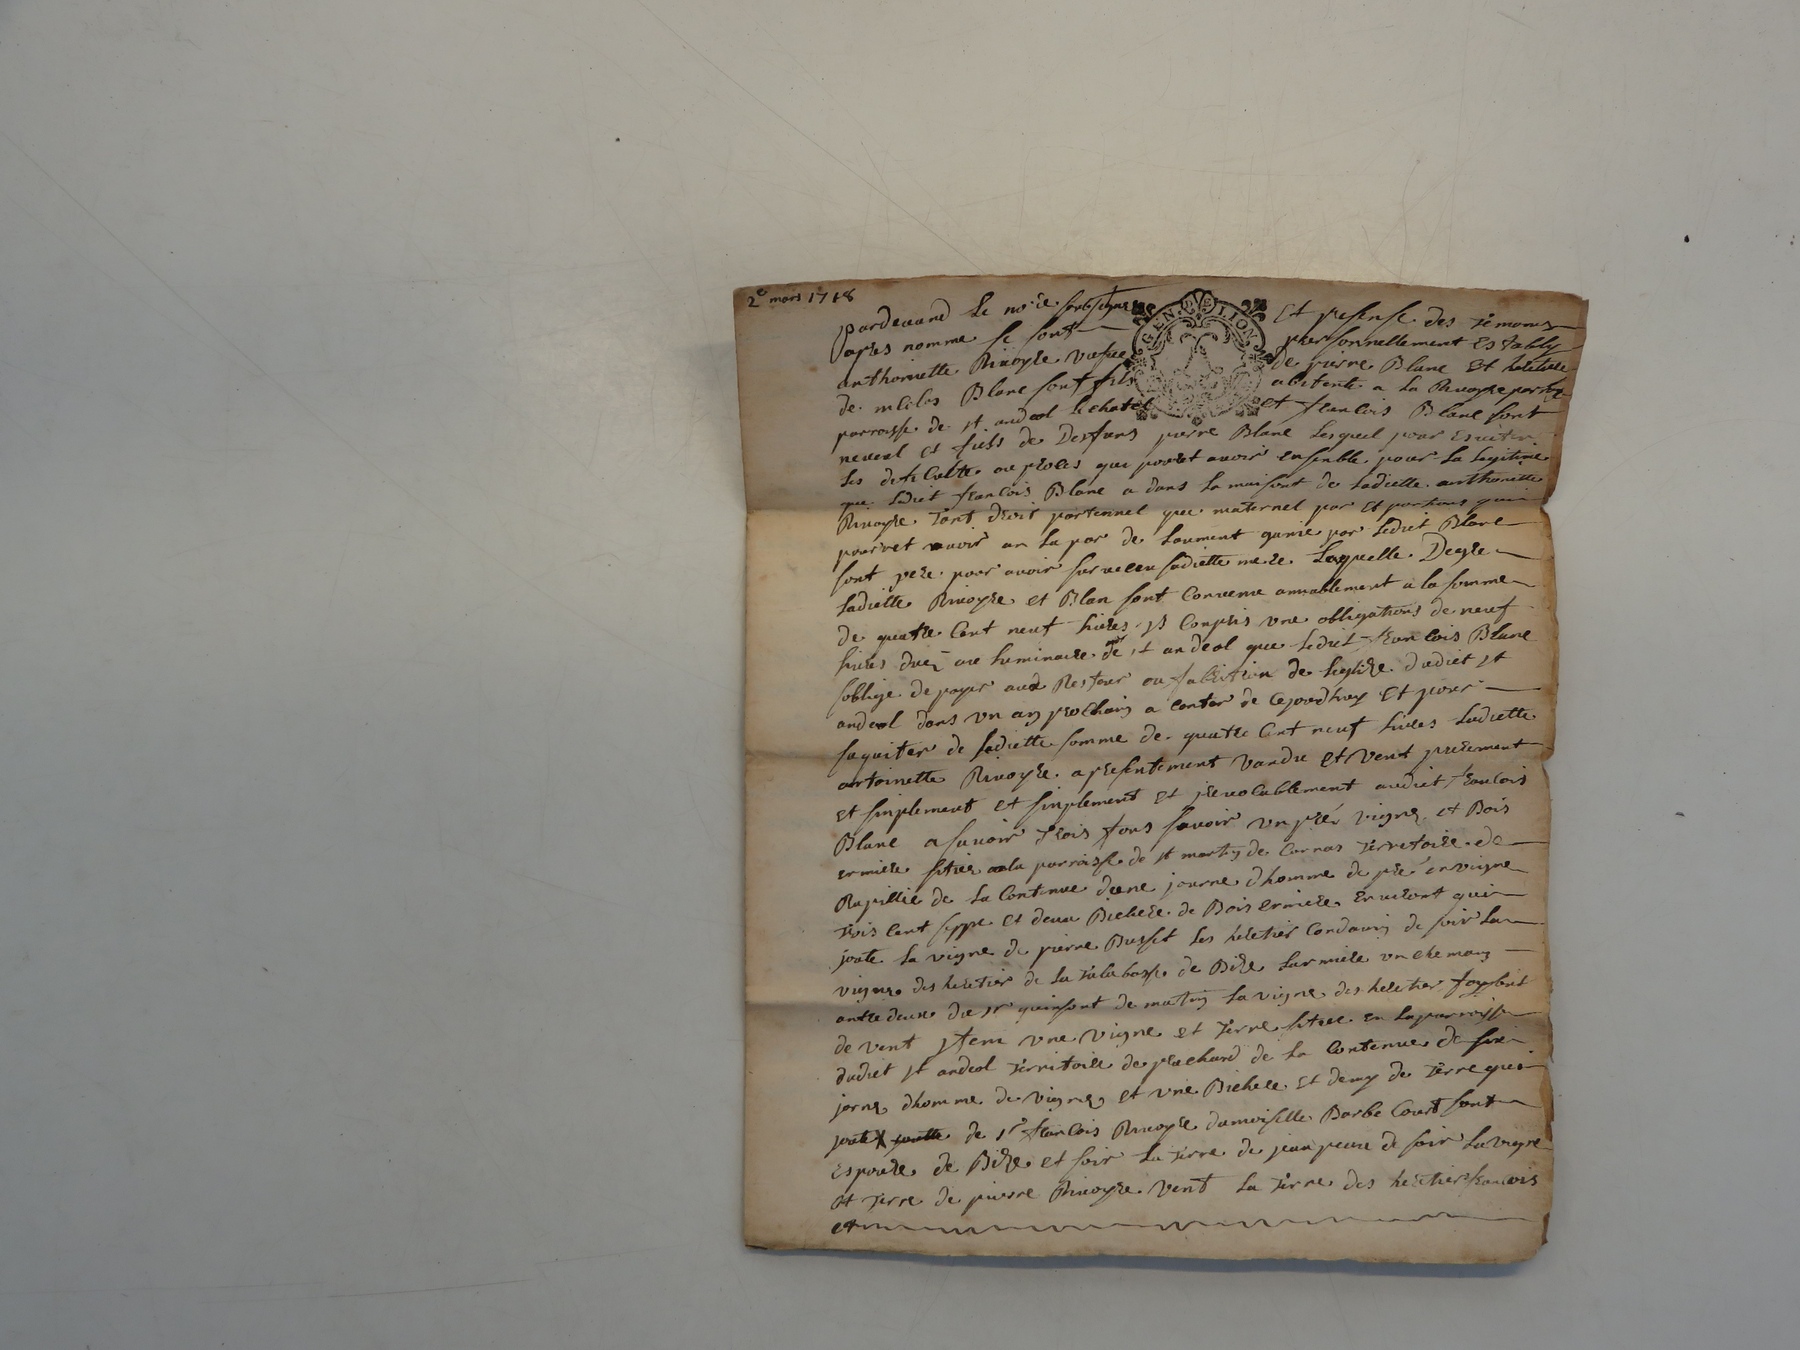 2e mars 1718
GEN. DE LION
pardevand le no.re soubsigne et presense des temoins
apres nomme se sont personnellement establly
anthoinette Rivoyre vefue de pierre Blanc et heretiere
de niclos Blanc sont fils abitente a la Rivoyre
parroisse de st andeol le chatel et francois Blanc sont
neveul et fiels de Deffuns pierre Blanc lesqueil pour esviter
les dificulte ou proces que pouret avoir ensenble pour la legitime
que ledict francois Blanc a dans la maisont de ladiette anthonette
Rivoyre tant droit parternel que maternel par et portions qui
pourret avoir an la par de laument ganie par ledict Blanc
sont pere pour avoir surveceu sadiette mere laquelle Degre
ladiette Rivoyre et Blan sont convenu amiablement a la somme
de quatre cent neuf livres y conpris vne obligations de neuf
livres due au luminaire de st andeol que ledict francois Blanc
soblige de payer aux Resteur ou fabrition de leglize dudict st
andeol dans vn an prochain a conter de cejourdhuy et pour
saquiter de ladiette somme de quatre cent neuf livres ladiette
antoinette Rivoyre a presentement vandu et vent purement
et sinplement et sinplement et irevocablement audict francois
Blanc a savoir trois fons savoir vn pré vigne et Bois
ermiere sitiee a la parroisse de st martin de Cornas territoire de
Rapillie de la contenue dune journe dhomme de pré en vigne
trois cent seppe et deux Bichere de Bois ermiere environt qui
joute la vigne de pierre Busset les heretier Condamin de soir la
vigne des heretier de la de Bize larmiere vn chemain
antre deux du sr quinsont de matin la vigne des heretier
de vent ytem vne vigne et terre sitiee en la parroisse
dudict st andeol territoire de prachard de la contenue de six
jorne dhomme de vigne et vne Bichere et demy de terre qui
joute joutte de sr francois Rivoyre damoiselle Barbe Court sont
espouze de Bize et soir la terre de jean de soir la vigne
et terre de pierre Rivoyre vent la terre des heretier francois
et